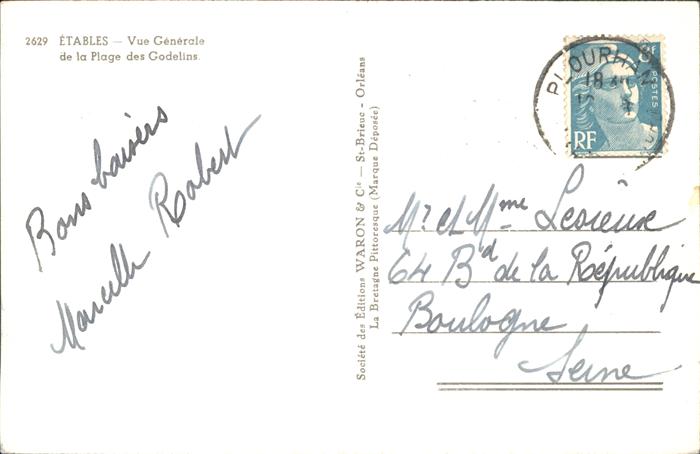 2629 ÉTABLES — Vue Générale
de la Plage des Godelins.
Bons baisers
Marcelle Robert
Société des Éditions WARON & Cie — St-Brieuc - Orléans
La Bretagne Pittoresque (Marque Déposée)
PLOURHAN
18
POSTES
RF
Mr et Mme Lesieux
64 Bd de la République
Boulogne
Seine